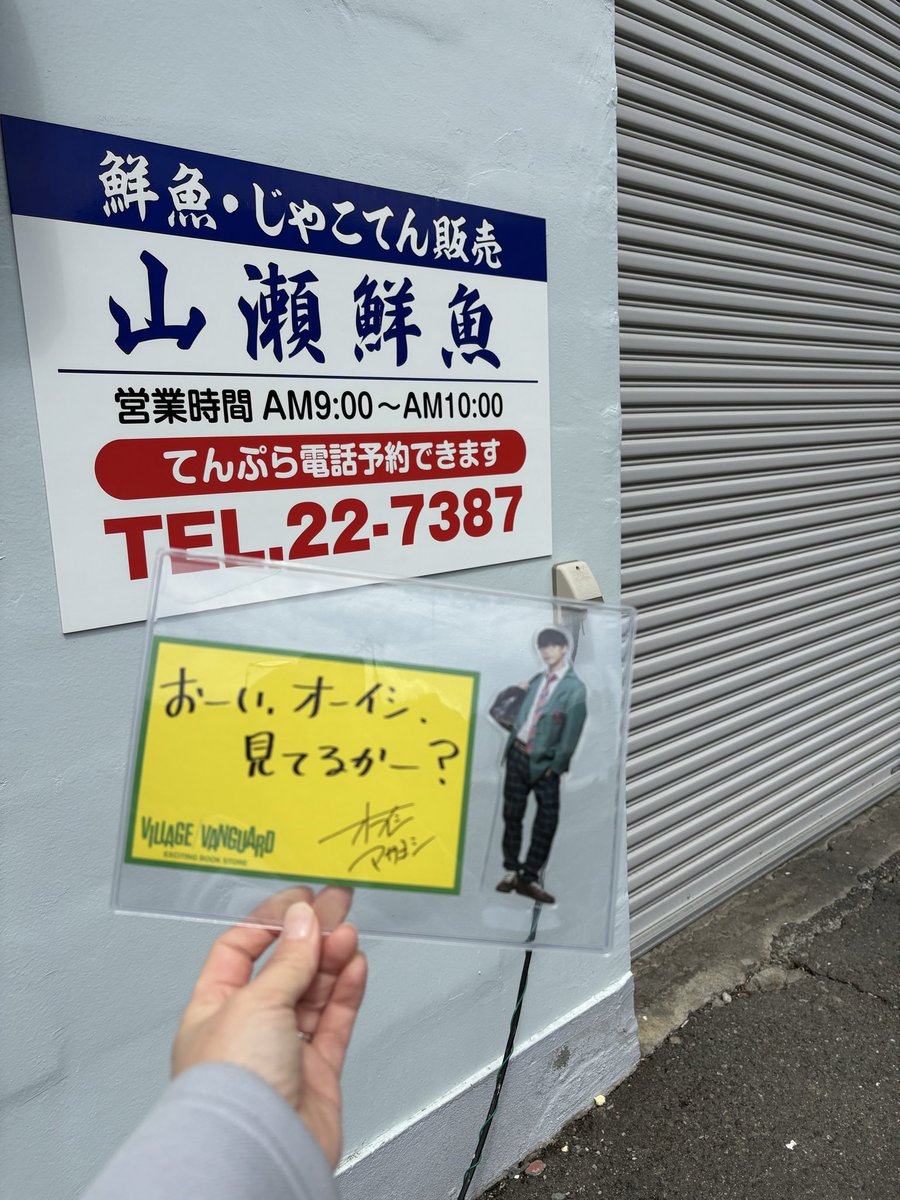 鮮魚・じゃこてん販売
山瀬鮮魚
営業時間 AM9:00〜AM10:00
てんぷら電話予約できます
TEL.22-7387
おーい、オーイシ、
見てるかー?
VILLAGE VANGUARD
EXCITING BOOK STORE
オーイシ
マサヨシ